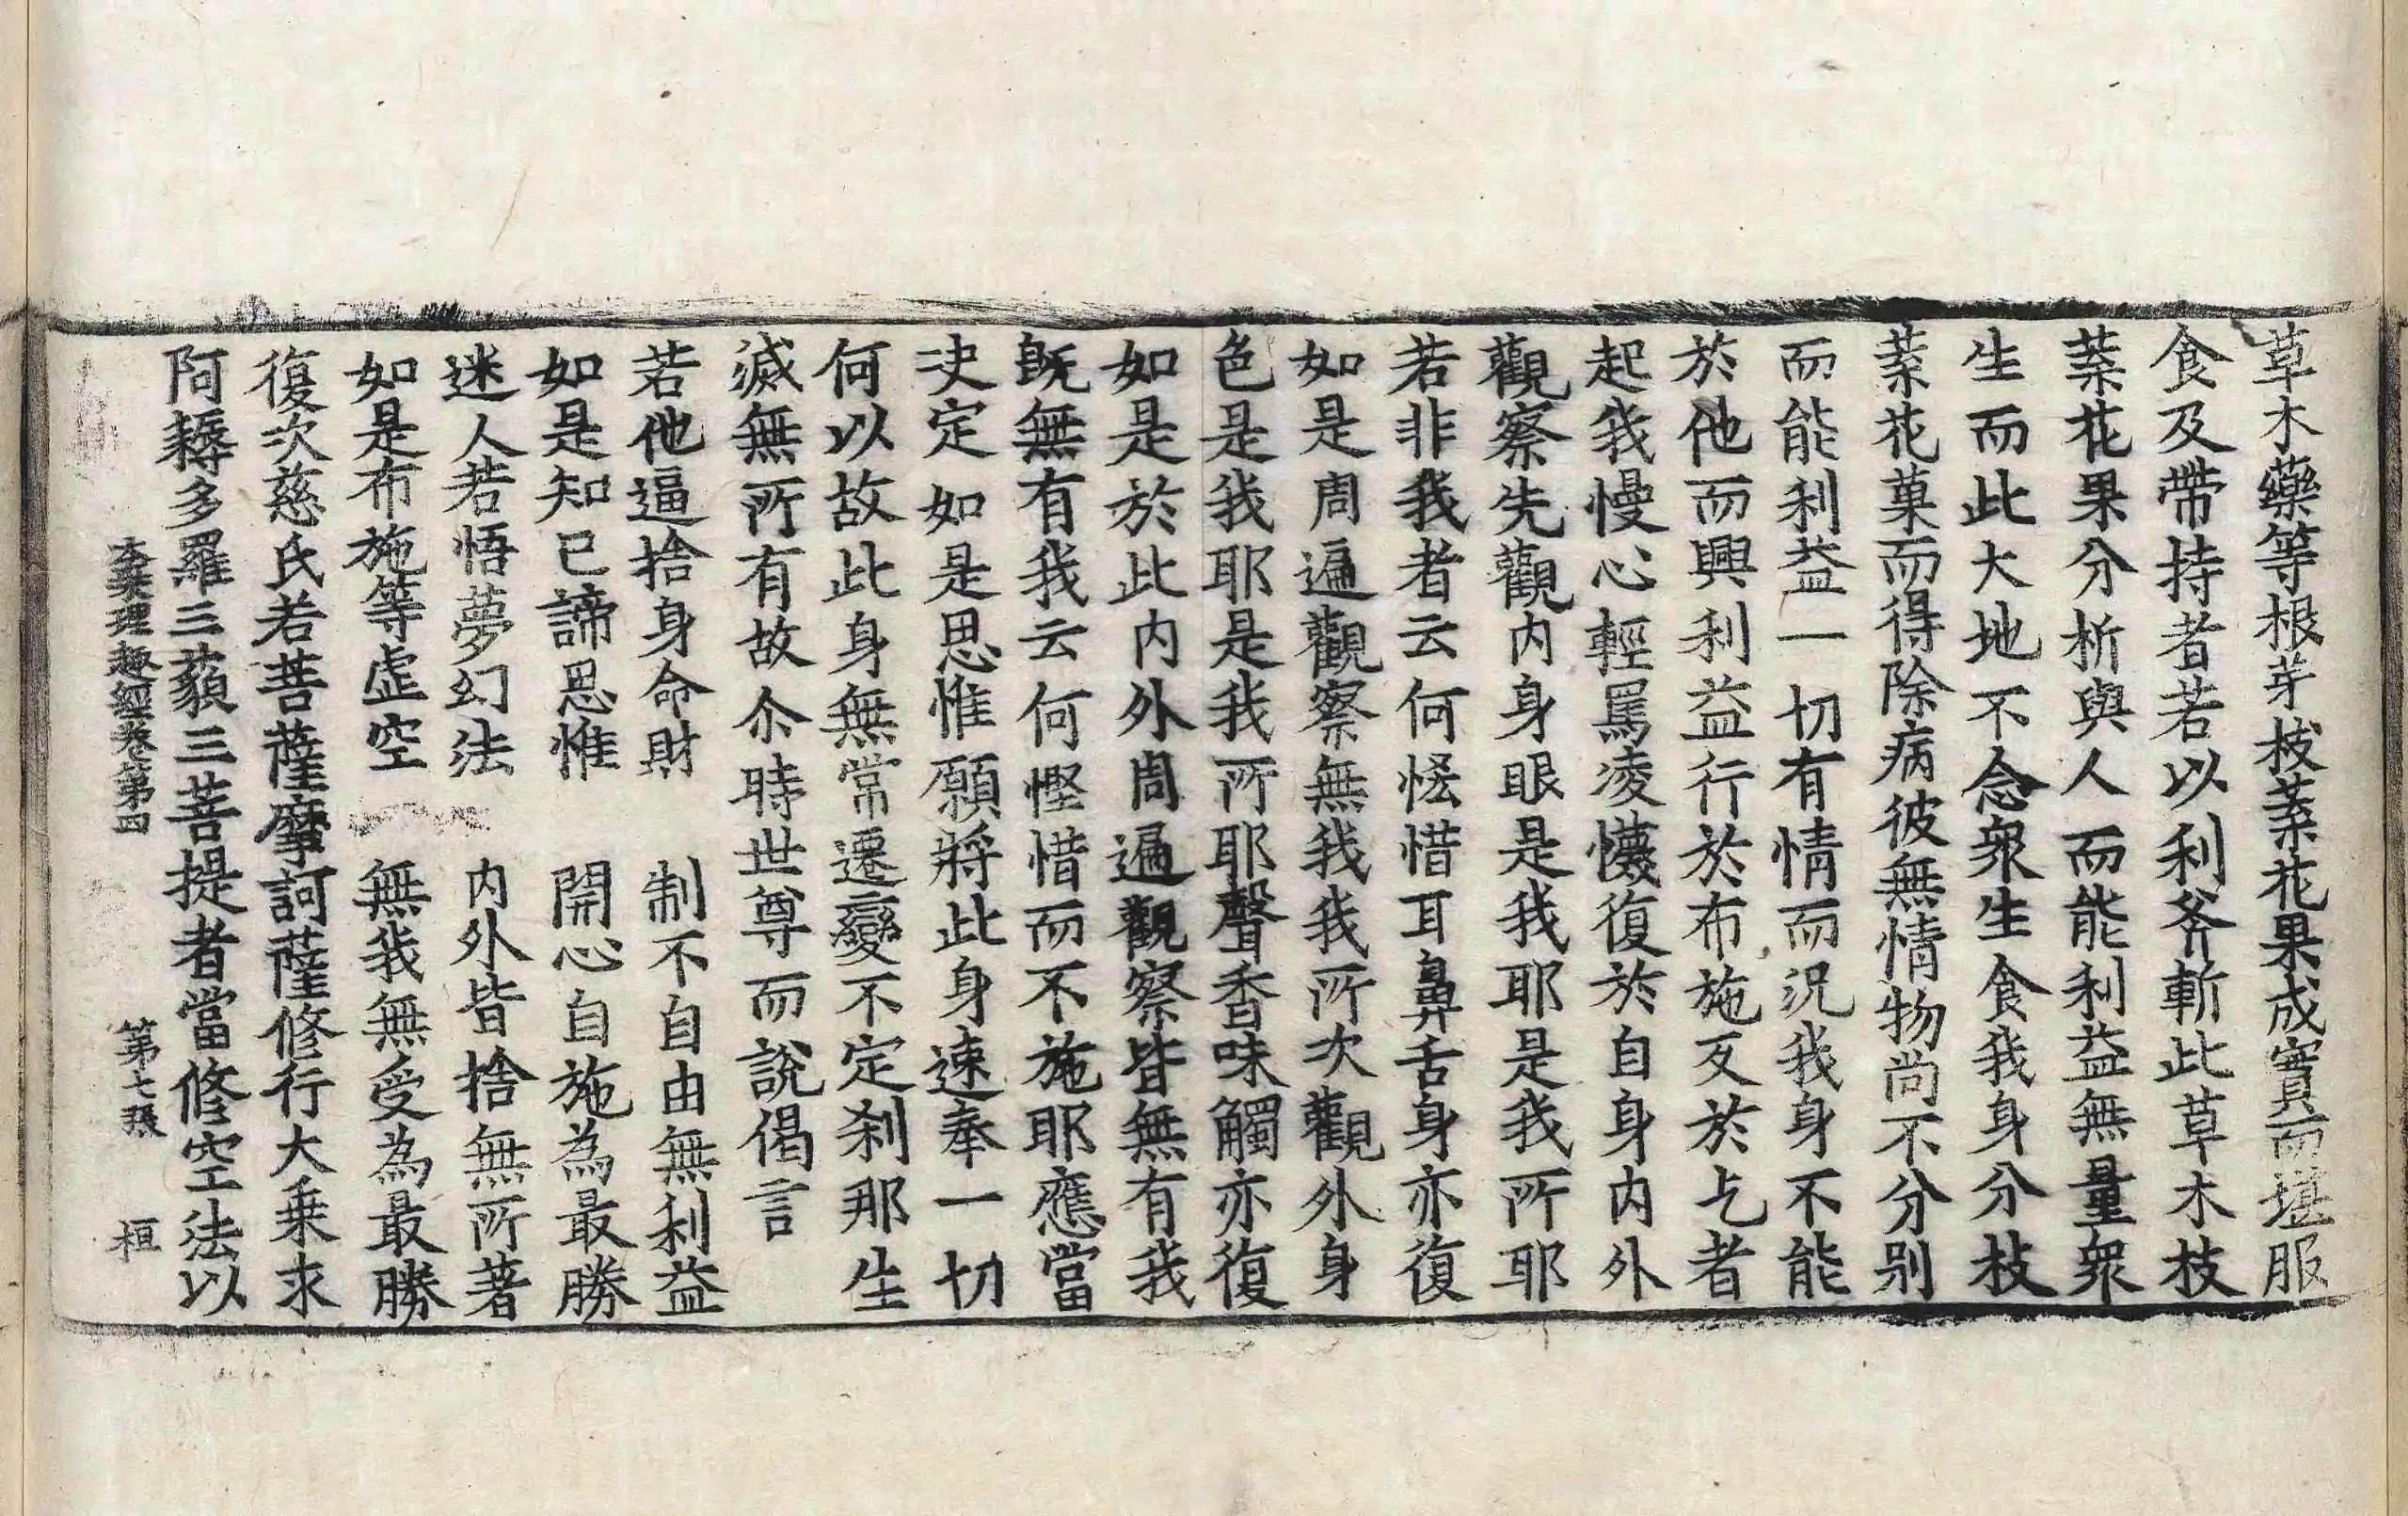 草木藥等根芽枝葉花果成實而堪服
食及帶持者若以利斧斬此草木枝
葉花果分析與人而能利益無量衆
生而此大地不念衆生食我身分枝
葉花菓而得除病彼無情物尚不分別
而能利益一切有情而況我身不能
於他而興利益行於布施反於乞者
起我慢心輕罵凌懱復於自身內外
觀察先觀內身眼是我耶是我所耶
若非我者云何恡惜耳鼻舌身亦復
如是周遍觀察無我我所次觀外身
色是我耶是我所耶聲香味觸亦復
如是於此內外周遍觀察皆無有我
既無有我云何慳惜而不施耶應當
決定如是思惟願將此身速奉一切
何以故此身無常遷變不定刹那生
滅無所有故尒時世尊而說偈言
若他逼捨身命財　制不自由無利益
如是知已諦思惟　開心自施為最勝
迷人若悟夢幻法　內外皆捨無所著
如是布施等虛空　無我無受為最勝
復次慈氏若菩薩摩訶薩修行大乘求
阿耨多羅三藐三菩提者當修空法以
大乘理趣經卷第四　第七張　桓